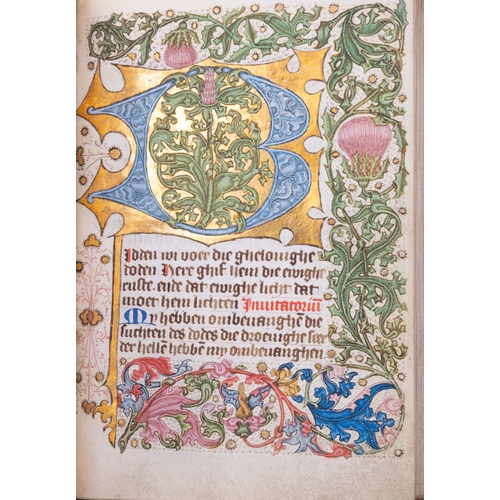 Bidden wi voer die ghelovighe
doden Here ghif hem die ewighe
ruste. ende dat ewighe licht dat
moet hem lichten Invitatorium
My hebben ombevanghen die
suchten des dodes die droevighe seer
der hellen hebben my ombevanghen